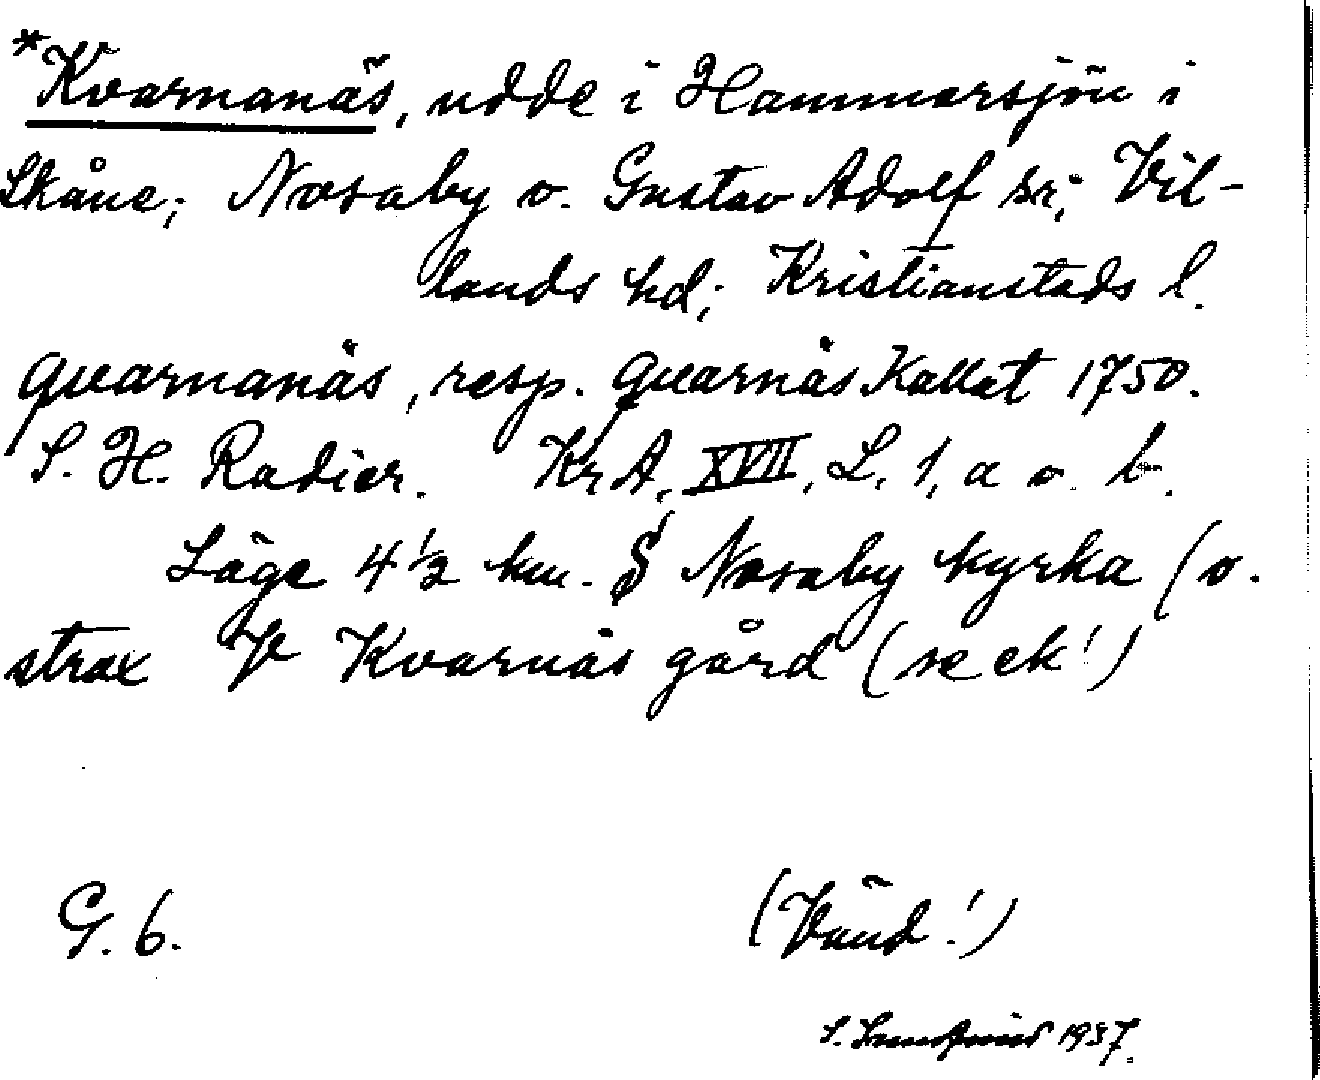 *Kvarnanäs, udde i Hammarsjön i
Skåne; Nosaby o. Gustav Adolf sn; Vil-
lands hd; Kristianstads l.
Qvarnanäs, resp. Qvarnäs Kallat 1750.
S. H. Radier. KrA, XVII, L, 1, a o. b.
Läge 4 1/2 km. S Nosaby kyrka (o.
strax V Kvarnäs gård (se ek!)
G. 6.
(Vänd!)
S. 1937.